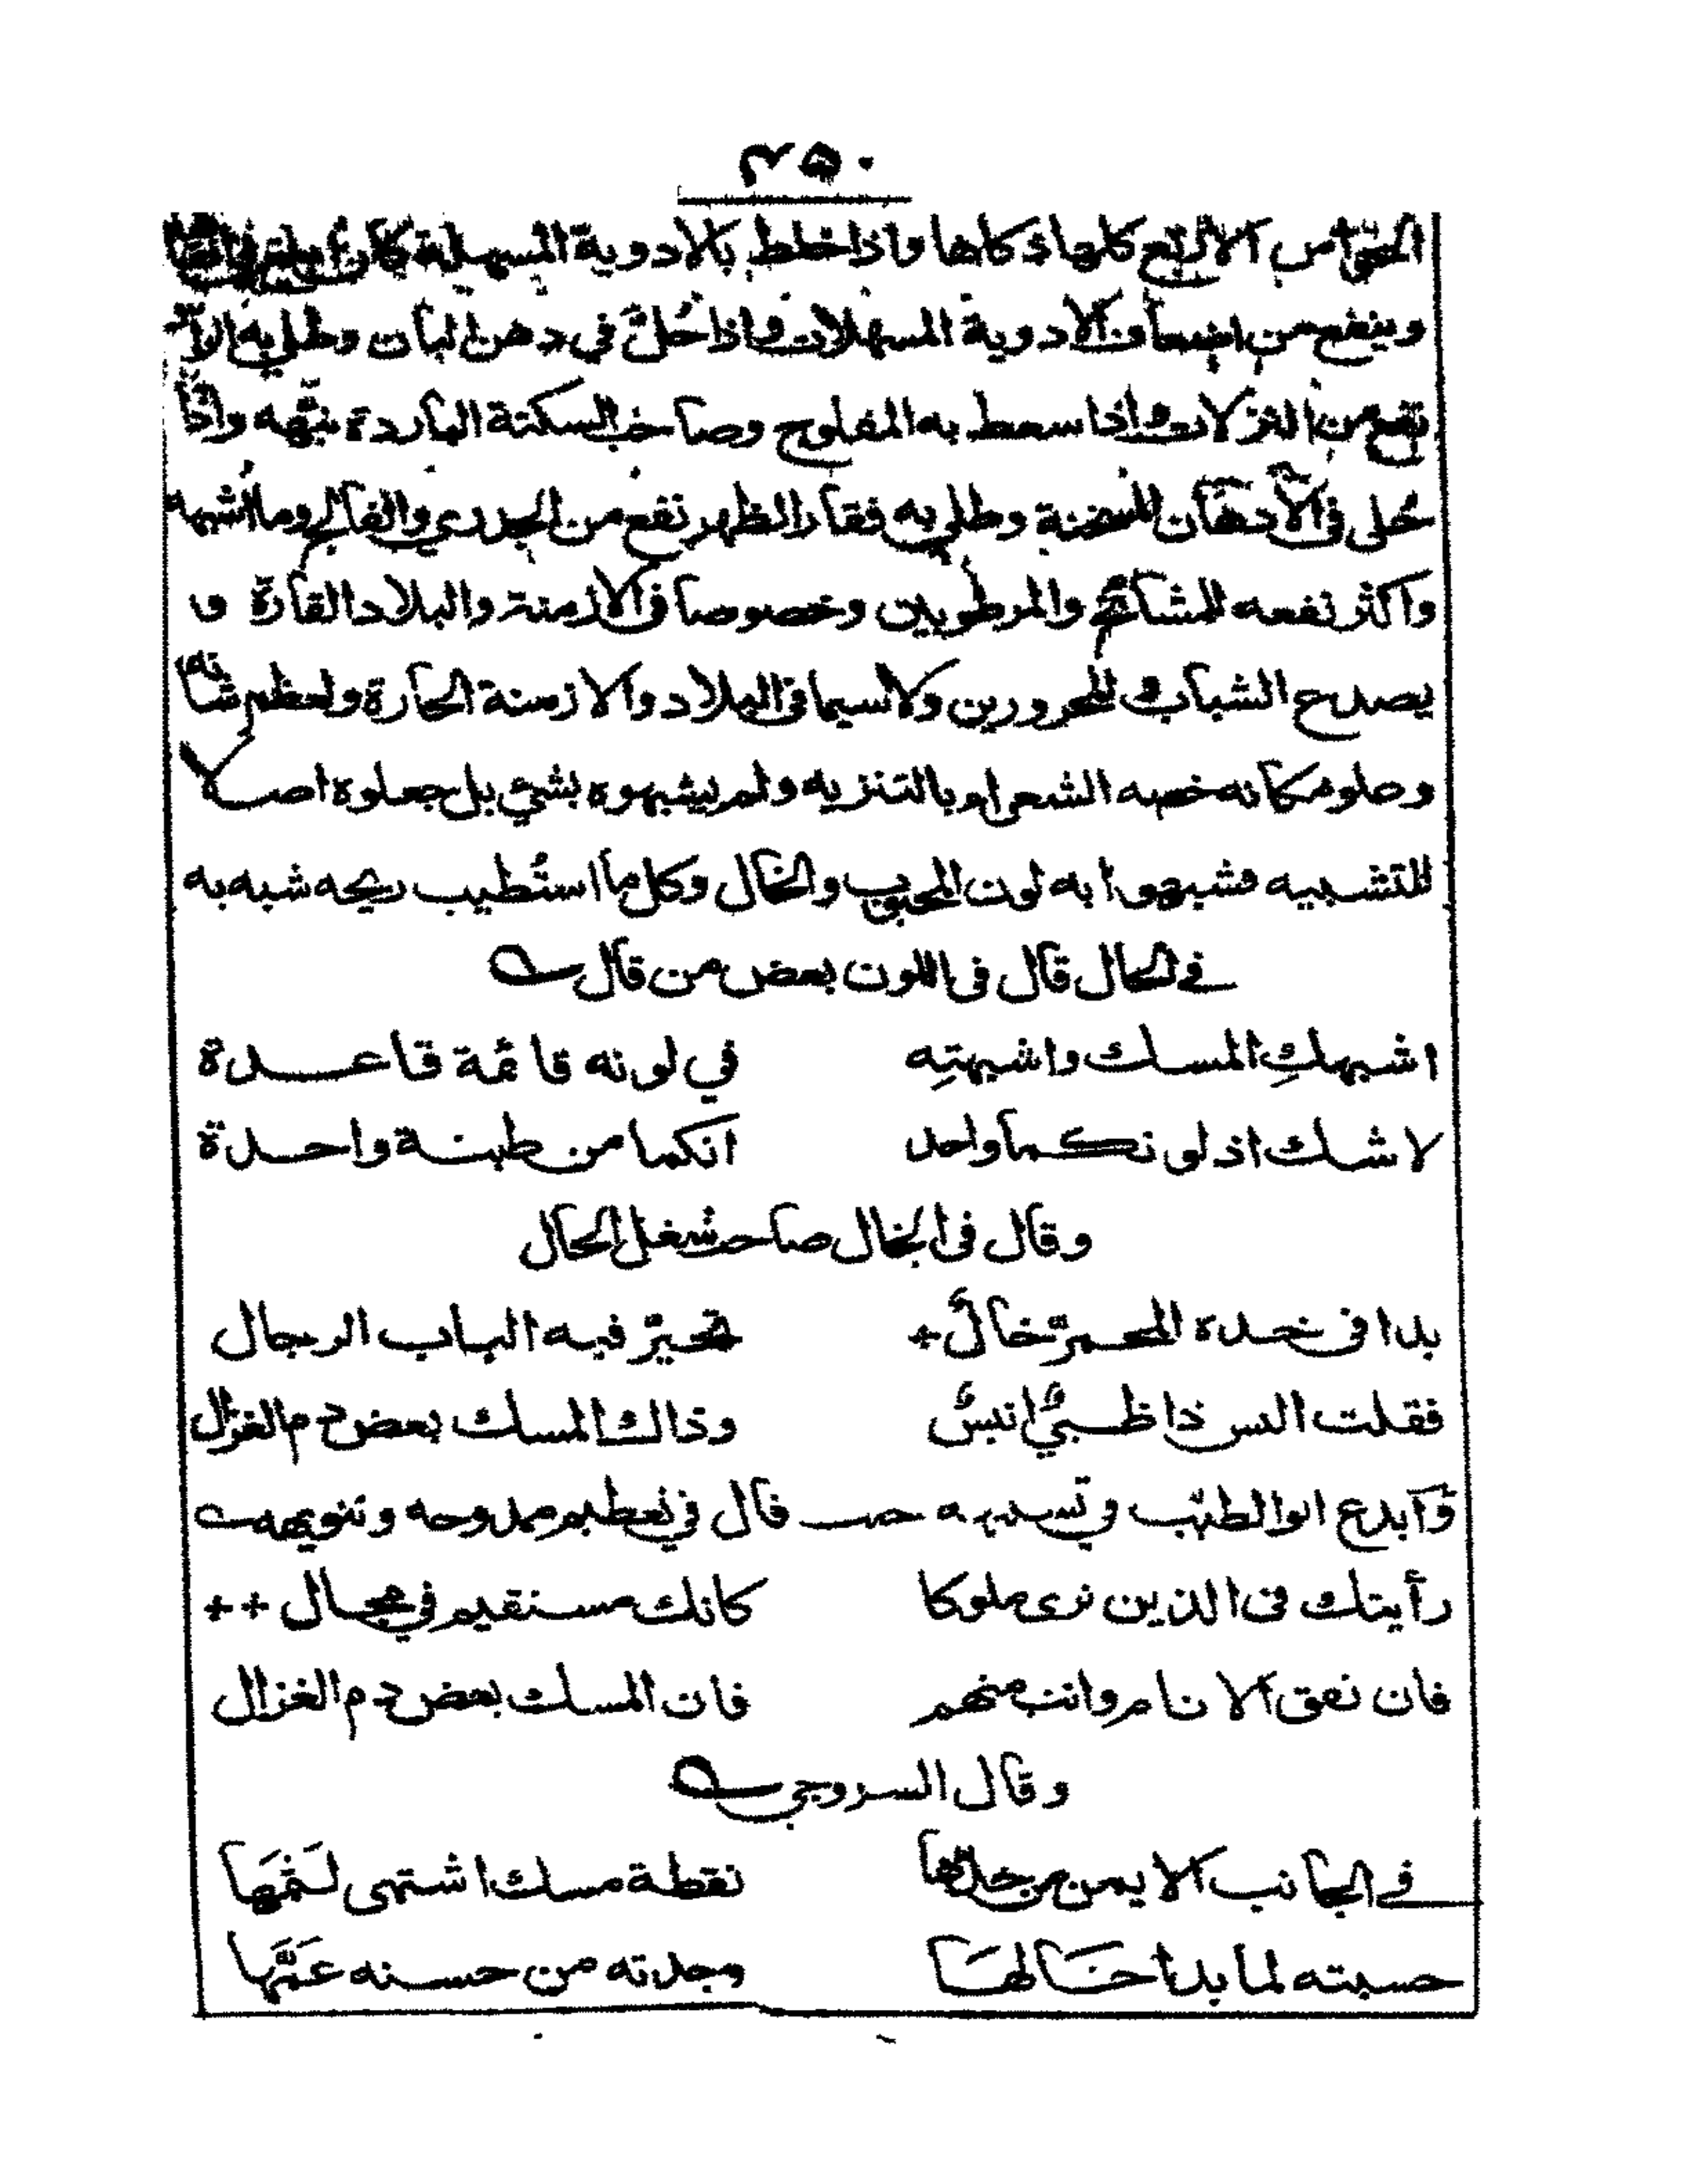 ٢٥٠
كلها ذكاها واذا خلط بالادوية المسهلة كان
وينفع من الادوية المسهلات واذا حُلّ في دهن البان وطلي به
نفع من النزلات واذا سعط به المفلوج وصاحب السكتة الباردة نبّهه واذا
حُلى فى الادهان المسخنة وطلى به فقار الظهر نفع من الخدر والفالج وما اشبهه
واكثر نفعه للمشائخ والمرطوبين وخصوصا فى الازمنة والبلاد القارّة و
يصدح الشباب والمحرورين ولا سيما فى البلاد والازمنة الحارة ولعظم شانه
وعلو مكانه خصه الشعراء بالتنزيه ولم يشبهوه بشئ بل جعلوه اصلا
للتشبيه فشبهوا به لون المحبوب والخال وكل ما استُطيب ريحه شبه به
فى الحال قال فى اللون بعض من قال
اشبهكِ المسك واشبهتِه في لونه قائمة قاعدة
لا شك اذ لونكما واحد انكما من طينة واحدة
وقال فى الخال صاحب شغل الحال
بدا فى خده المحمرّ خالٌ + تحيّر فيه الباب الرجال
فقلت اليس ذا ظبيٌ انيسٌ وذاك المسك بعض دم الغزال
وابدع ابو الطيّب فى تشبيهه حيث قال في تعظيم ممدوحه وتنويهه
رأيتك فى الذين نرى ملوكا كانك مستقيم في محال ++
فان تفق الانام وانت منهم فان المسك بعض دم الغزال
وقال السروجي
فى الجانب الايمن من خدّها نقطة مسك اشتهى لَثمَها
حسبته لما بدا خَالهَا وجدته من حسنه عَمّها